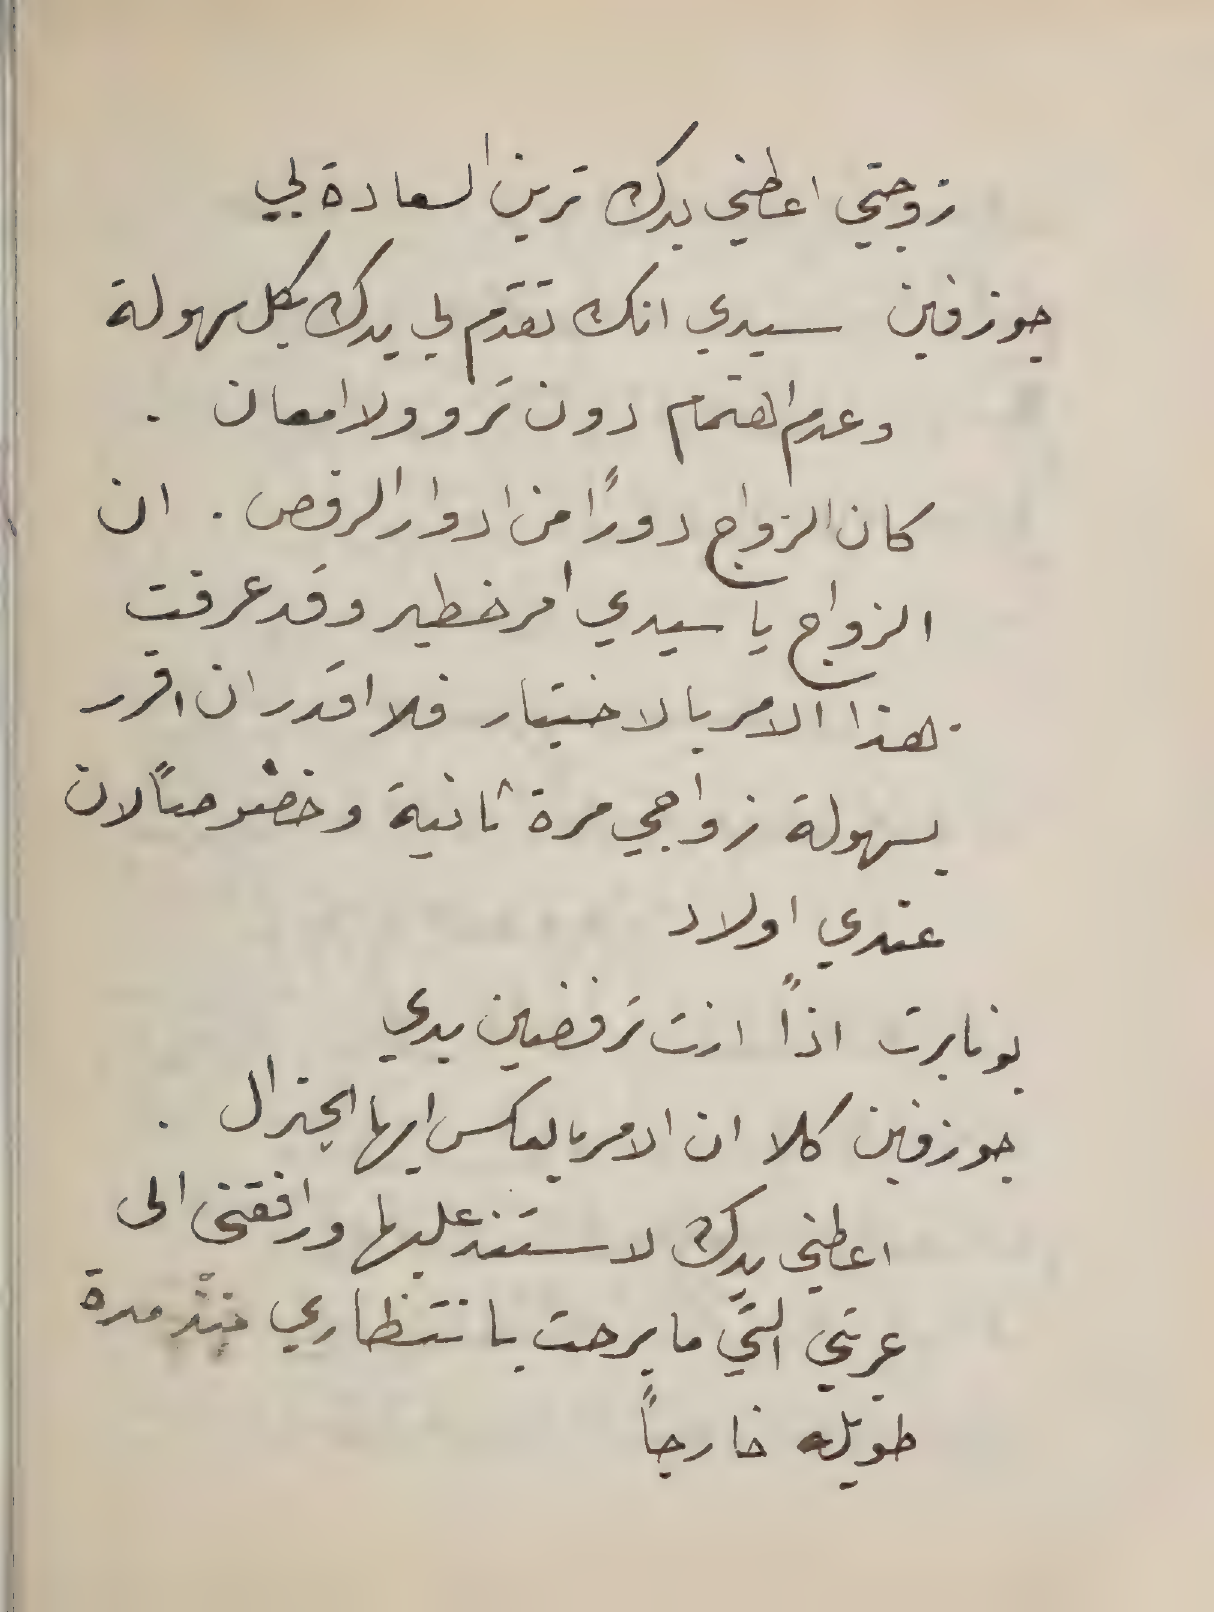 زوجتي اعطني يدك ترين السعادة لي
جوزفين سيدي انك تقدم لي يدك بكل سهولة
وعدم اهتمام دون تَرو ولا امعان .
كان الزواج دورًا من ادوار الرقص . ان
الزواج يا سيدي امر خطير وقد عرفت
هذا الامر بالاختبار فلا اقدر ان اقرر
بسهولة زواجي مرة ثانية وخصوصاً لان
عندي اولاد
بونابرت اذاً انت ترفضين يدي
جوزفين كلا ان الامر بالعكس ايها الجنرال .
اعطني يدك لاستند عليها ورافقني الى
عربتي التي ما برحت بانتظاري منذ مدة
طويله خارجاً